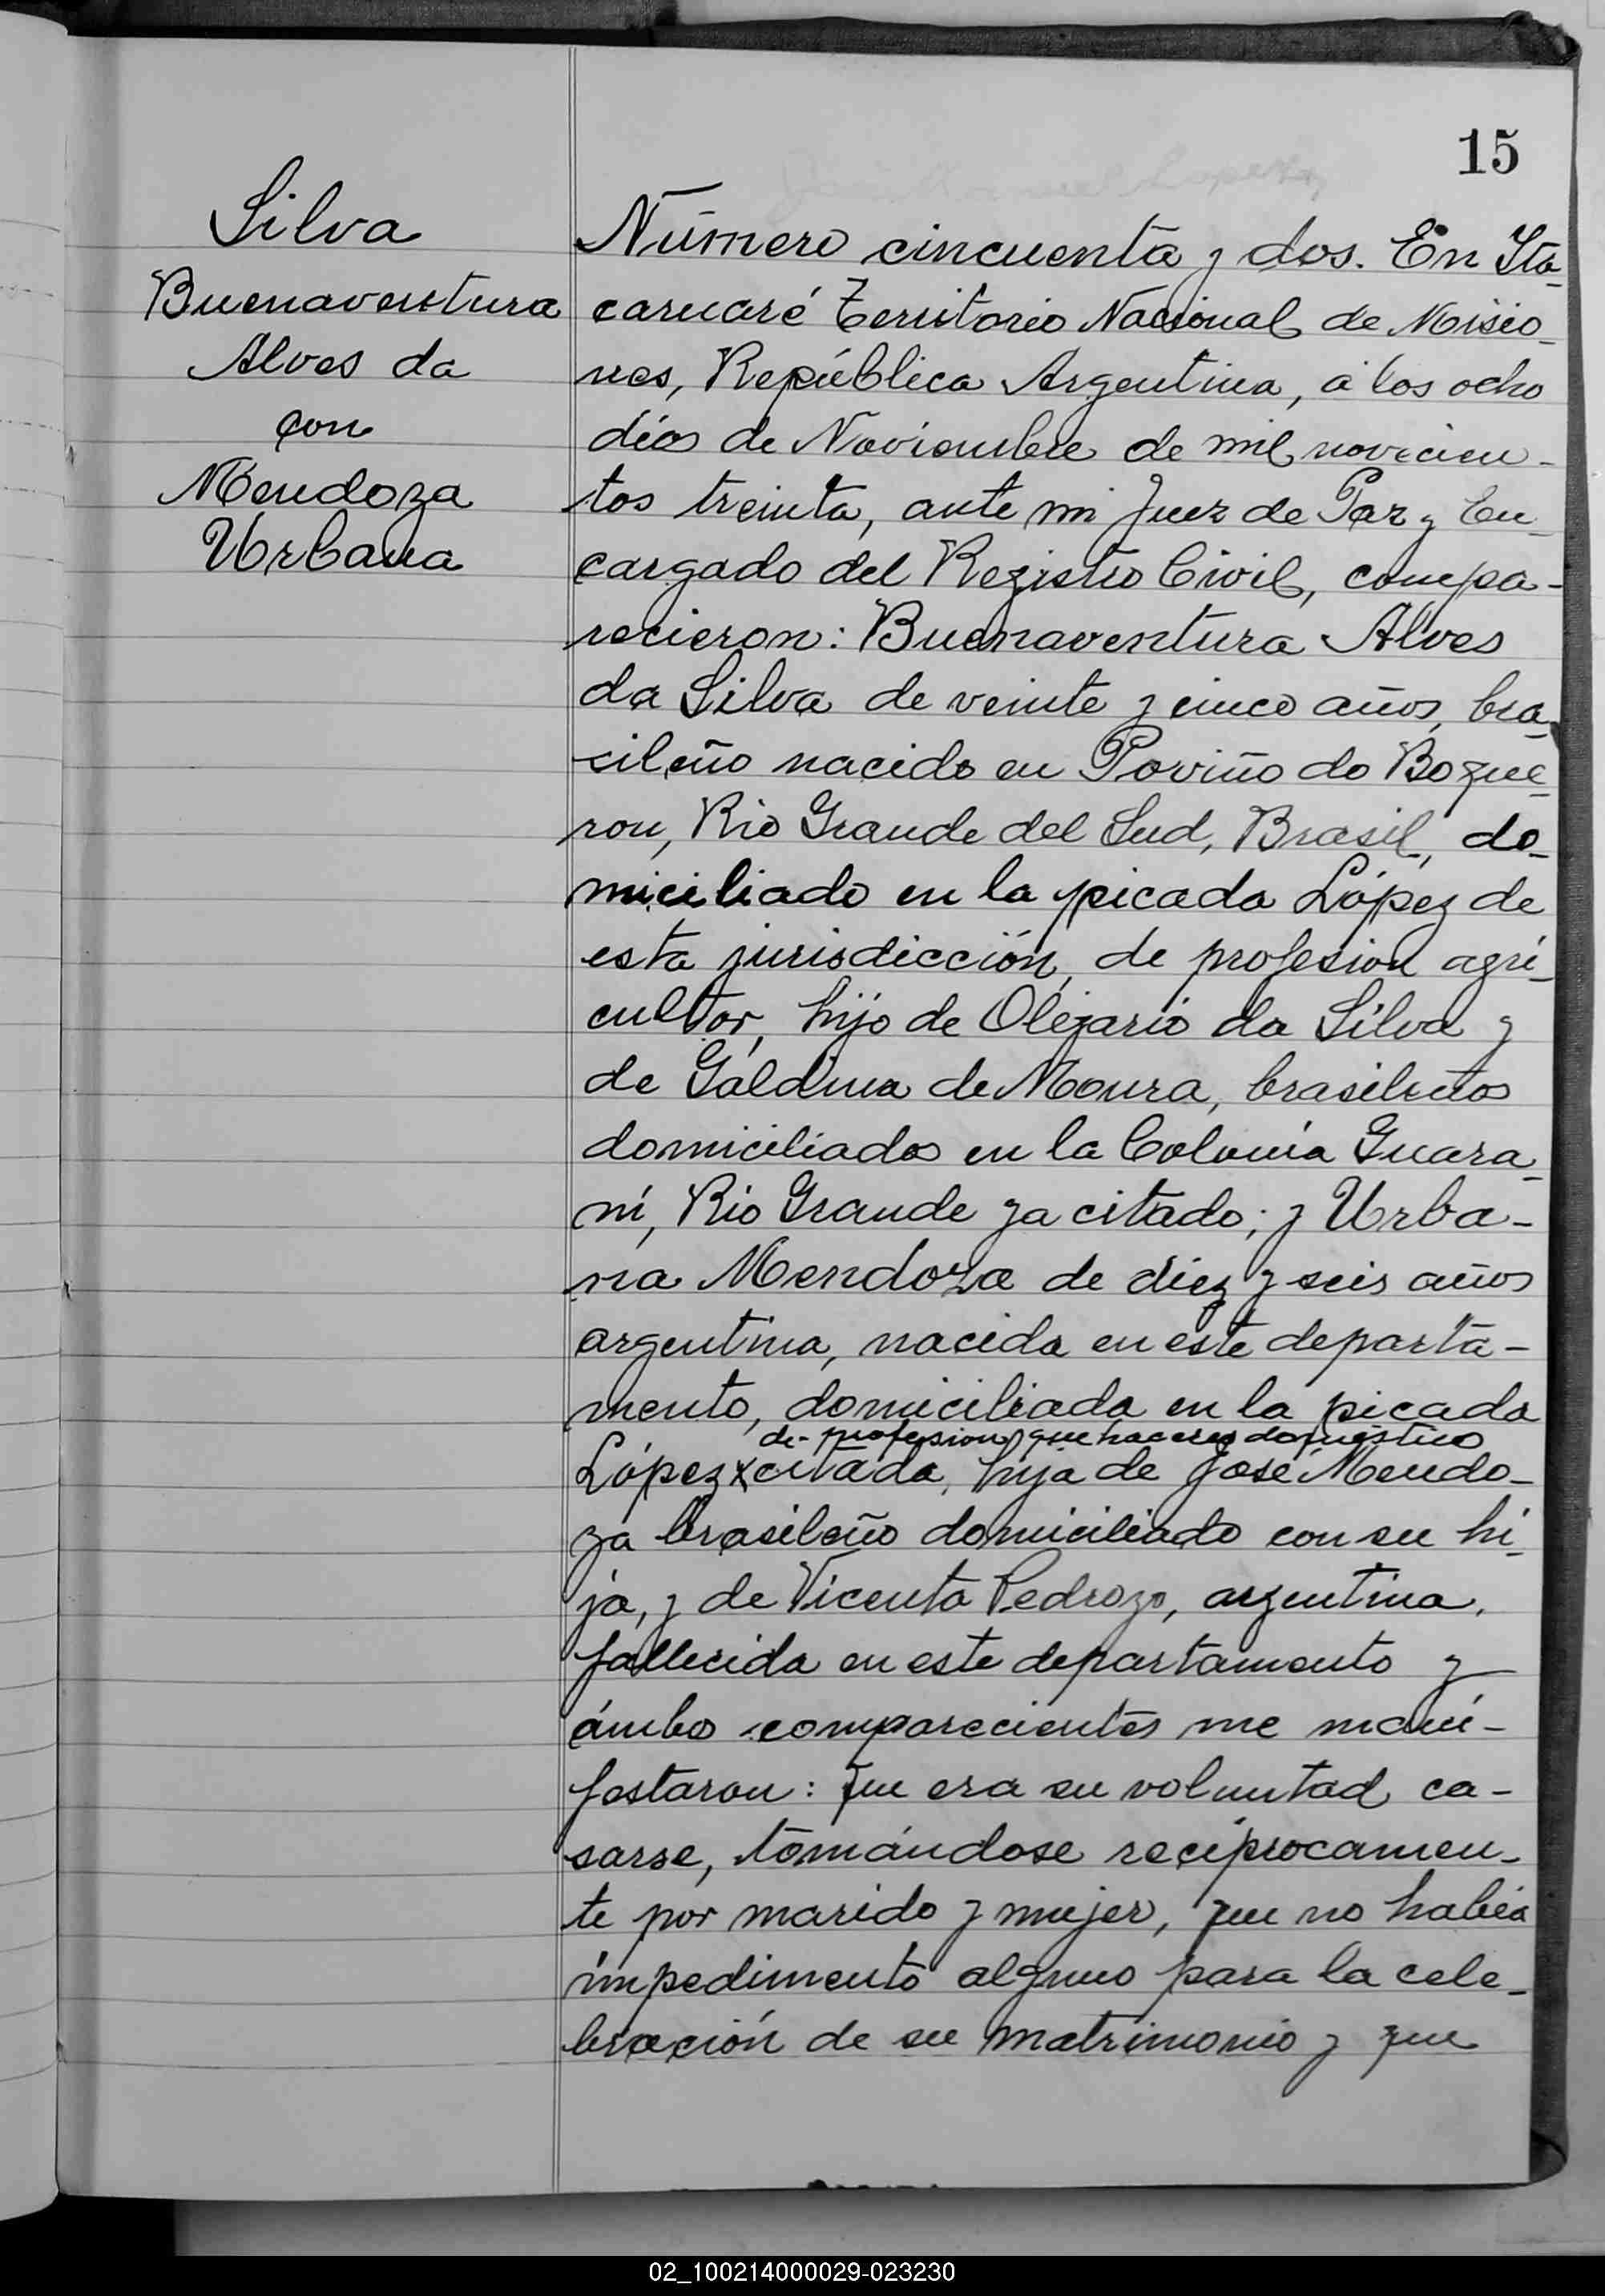 15
Silva
Buenaventura
Alves da
con
Mendoza
Urbana
Número cincuenta y dos. En Ita-
caruaré Territorio Nacional de Misio-
nes, República Argentina, á los ocho
días de Noviembre de mil novecien-
tos treinta, ante mi Juez de Paz y En-
cargado del Registro Civil, compa-
recieron: Buenaventura Alves
da Silva de veinte y cinco años, bra-
sileño nacido en Poviño do Boque-
ron, Rio Grande del Sud, Brasil, do-
miciliado en la picada López de
esta jurisdicción, de profesion agri-
cultor, hijo de Olegario da Silva y
de Galdina de Moura, brasileños
domiciliados en la Colonia Guara-
ní, Rio Grande ya citado; y Urba-
na Mendoza de diez y seis años
argentina, nacida en este departa-
mento, domiciliada en la picada
de profesion quehaceres domestico
López x citada, hija de José Mendo-
za brasileño domiciliado con su hi-
ja, y de Vicenta Pedrozo, argentina,
fallecida en este departamento y
ámbos comparecientes me mani-
festaron: que era su voluntad ca-
sarse, tomándose recíprocamen-
te por marido y mujer, que no habia
impedimento alguno para la cele-
bración de su matrimonio y que
02_100214000029-023230